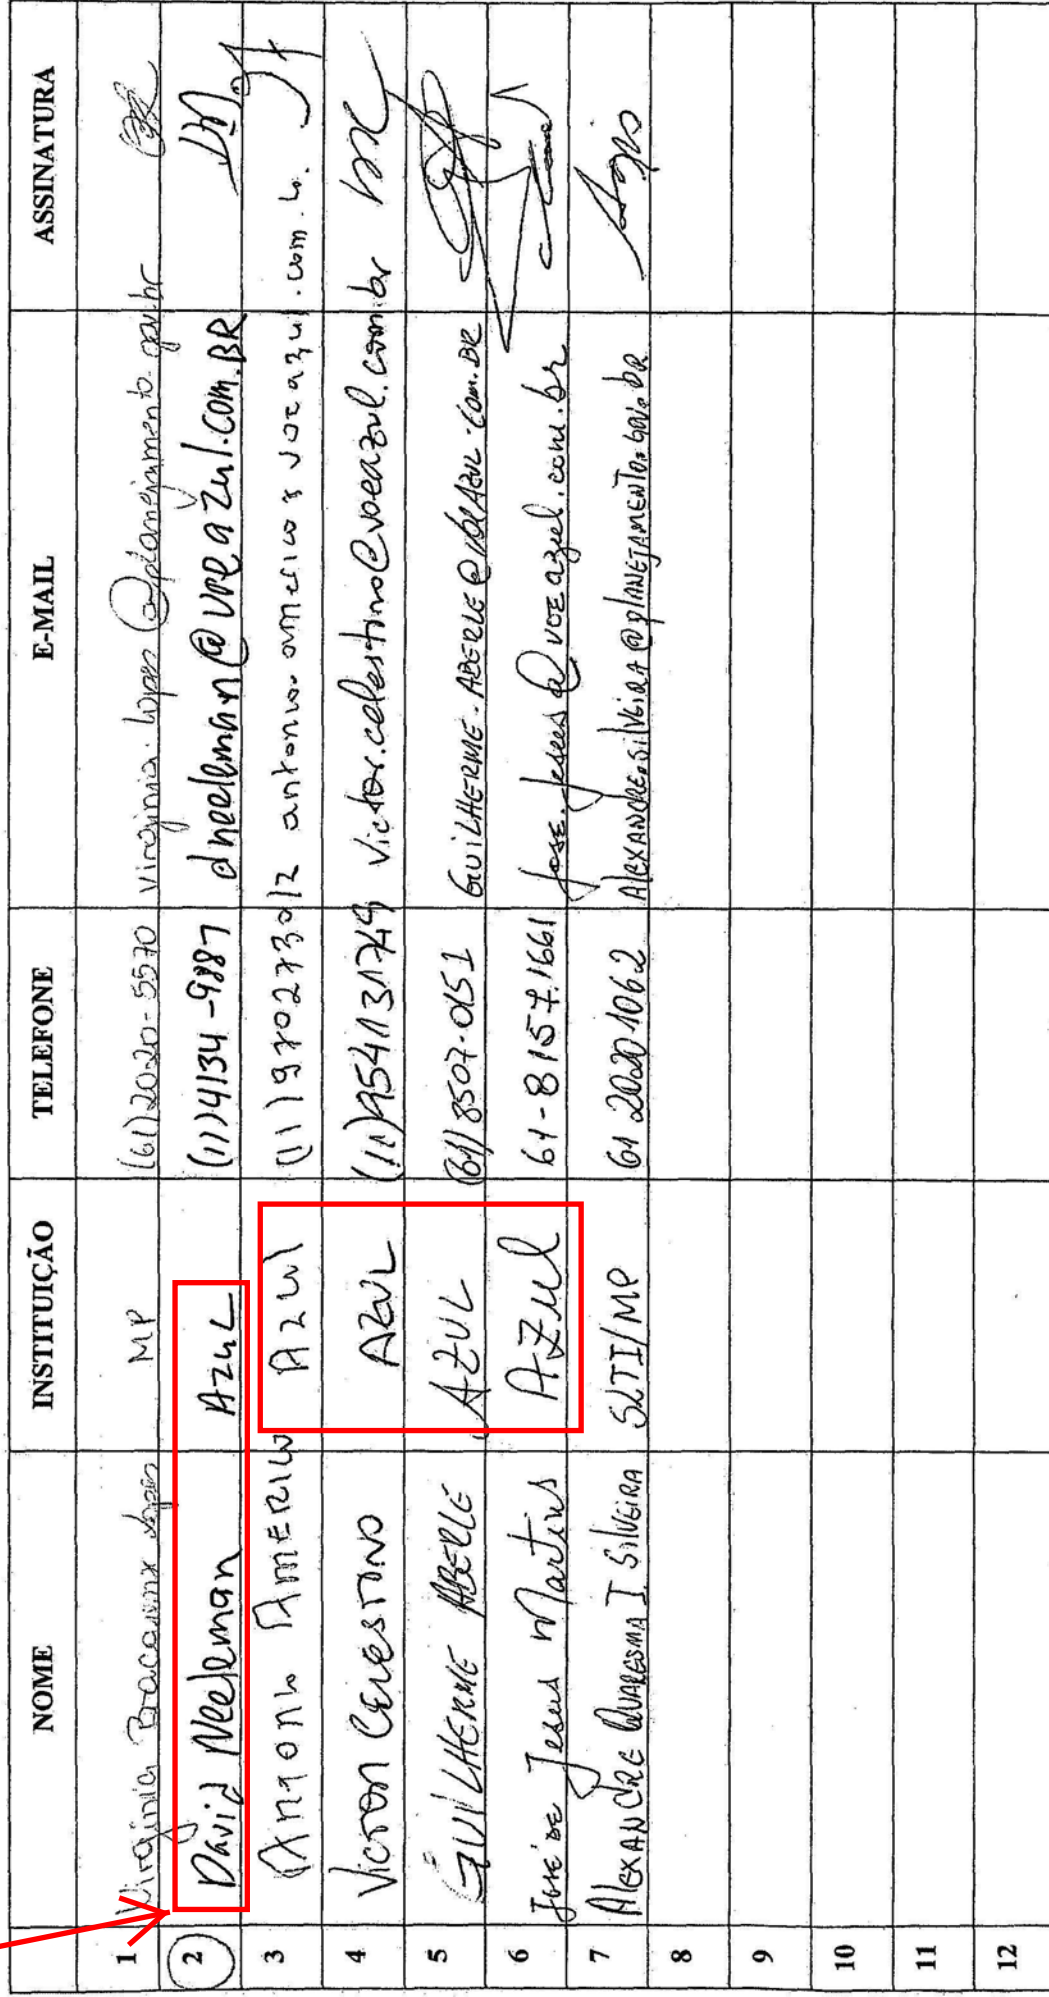 NOME INSTITUIÇÃO TELEFONE E-MAIL ASSINATURA
1 Virginia Bracarense Lopes MP (61)2020-5570 virginia.lopes@planejamento.gov.br
2 David Neeleman Azul (11)4134-9887 dneeleman@voeazul.com.BR DN.
3 Antonio Americo Azul (11)970273012
4 Victor Celestino AZUL (11)954131749 victor.celestino@voeazul.com.br
5 GUILHERME ABERLE AZUL (61) 8507-0151 GUILHERME.ABERLE@VOEAZUL.COM.BR
6 José de Jesus Martins AZul 61-8157.1661 jose.jesus@voeazul.com.br
7 ALEXANDRE QUARESMA I. SILVEIRA SLTI/MP 61 20201062 ALEXANDRE.SILVEIRA@PLANEJAMENTO.GOV.BR
8
9
10
11
12